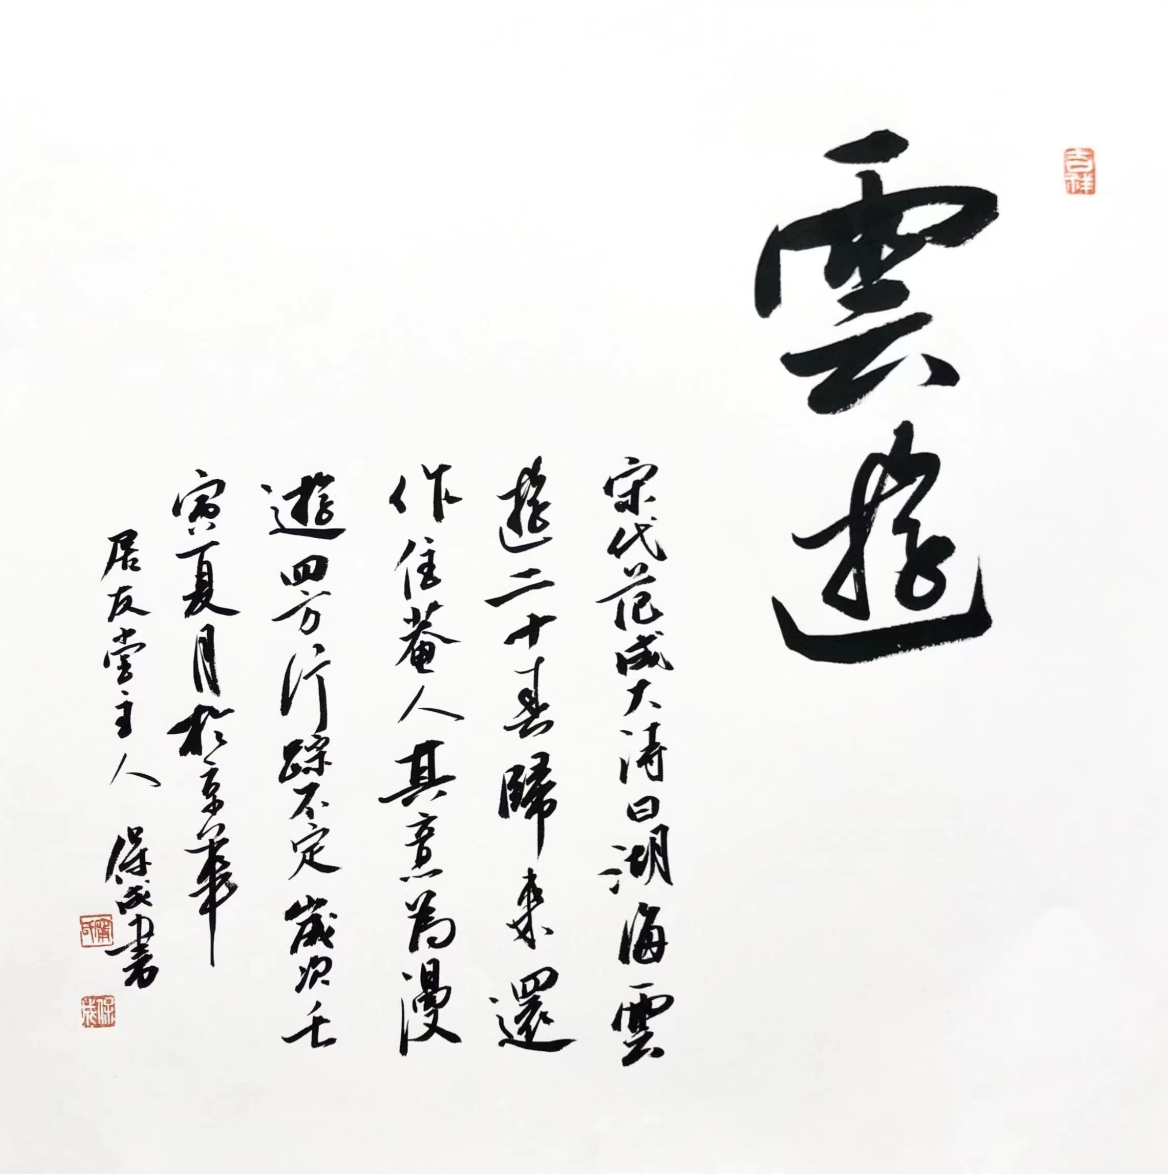 雲遊
吉祥
宋代范成大詩曰湖海雲
遊二十春歸來還
作住菴人其意為漫
遊四方行踪不定歲次壬
寅夏月於京華
居友堂主人保成書
保成